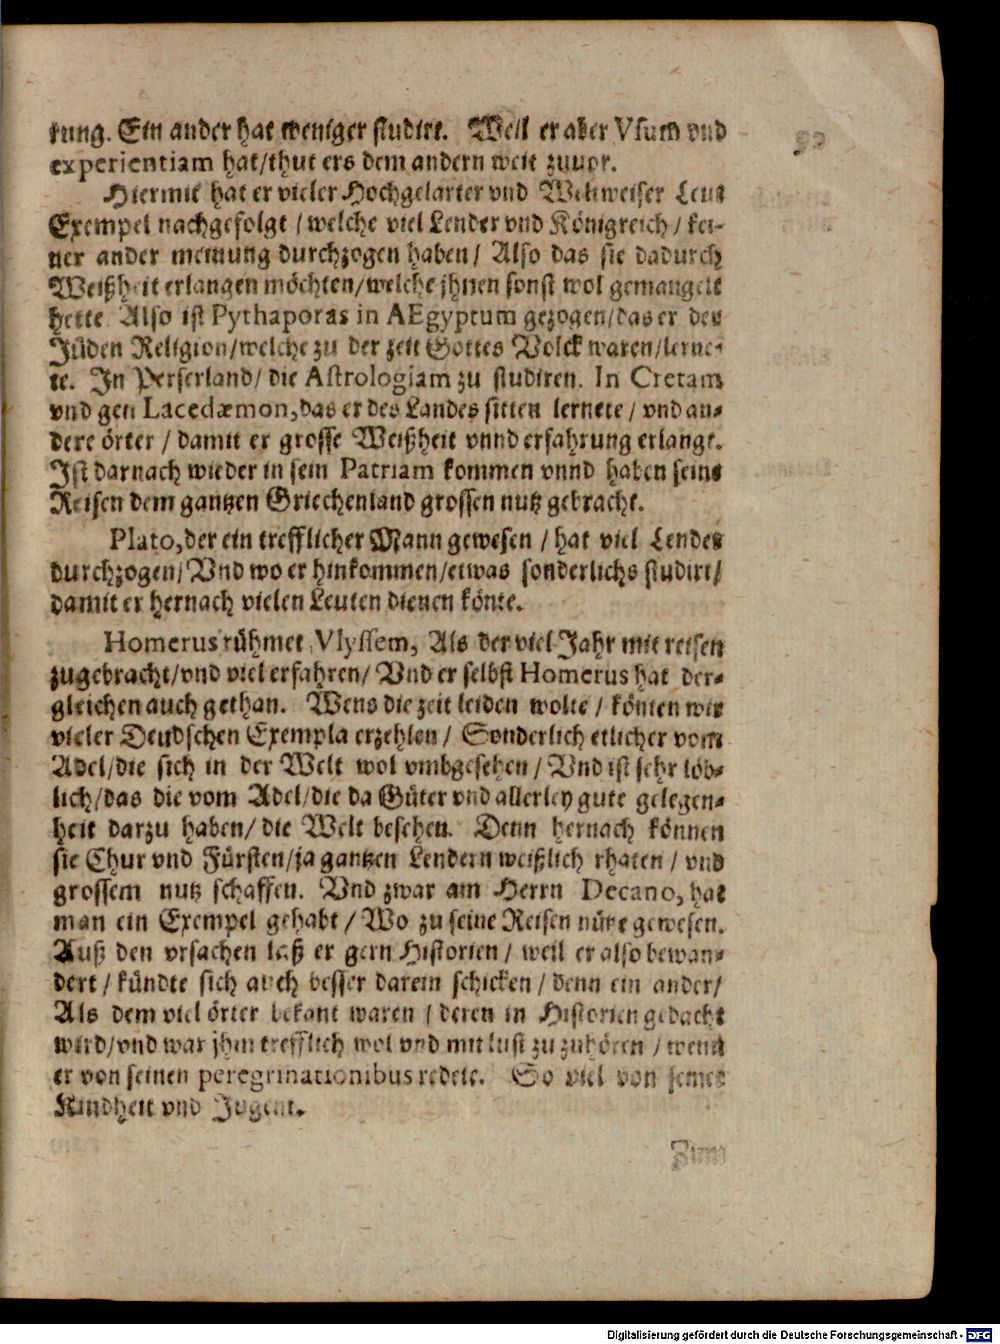 kung. Ein ander hat weniger studirt. Weil er aber Vsum vnd
experientiam hat/thut ers dem andern weit zuuor.
Hiermit hat er vieler Hochgelarter vnd Weltweiser Leut
Exempel nachgefolgt / welche viel Lender vnd Königreich / kei-
ner ander meinung durchzogen haben / Also das sie dadurch
Weißheit erlangen möchten/welche jhnen sonst wol gemangelt
hette. Also ist Pythaporas in AEgyptum gezogen/das er der
Jüden Religion/welche zu der zeit Gottes Volck waren/lerne-
te. In Perserland/ die Astrologiam zu studiren. In Cretam
vnd gen Lacedæmon, das er des Landes sitten lernete / vnd an-
dere örter / damit er grosse Weißheit vnnd erfahrung erlangt.
Ist darnach wieder in sein Patriam kommen vnnd haben seine
Reisen dem gantzen Griechenland grossen nutz gebracht.
Plato, der ein trefflicher Mann gewesen / hat viel Lender
durchzogen/ Vnd wo er hinkommen/etwas sonderlichs studirt/
damit er hernach vielen Leuten dienen könte.
Homerus rühmet Vlyssem, Als der viel Jahr mit reisen
zugebracht/vnd viel erfahren/ Vnd er selbst Homerus hat der-
gleichen auch gethan. Wens die zeit leiden wolte / könten wir
vieler Deudschen Exempla erzehlen / Sonderlich etlicher vom
Adel/die sich in der Welt wol vmbgesehen / Vnd ist sehr löb-
lich/das die vom Adel/die da Güter vnd allerley gute gelegen-
heit darzu haben/ die Welt besehen. Denn hernach können
sie Chur vnd Fürsten/ja gantzen Lendern weißlich rhaten / vnd
grossem nutz schaffen. Vnd zwar am Herrn Decano, hat
man ein Exempel gehabt / Wo zu seine Reisen nütze gewesen.
Auß den vrsachen laß er gern Historien / weil er also bewan-
dert / kündte sich auch besser darein schicken / denn ein ander/
Als dem viel örter bekant waren / deren in Historien gedacht
wird/vnd war jhm trefflich wol vnd mit lust zu zuhören / wenn
er von seinen peregrinationibus redete. So viel von seiner
Kindheit vnd Jugent.
Zum
Digitalisierung gefördert durch die Deutsche Forschungsgemeinschaft - DFG